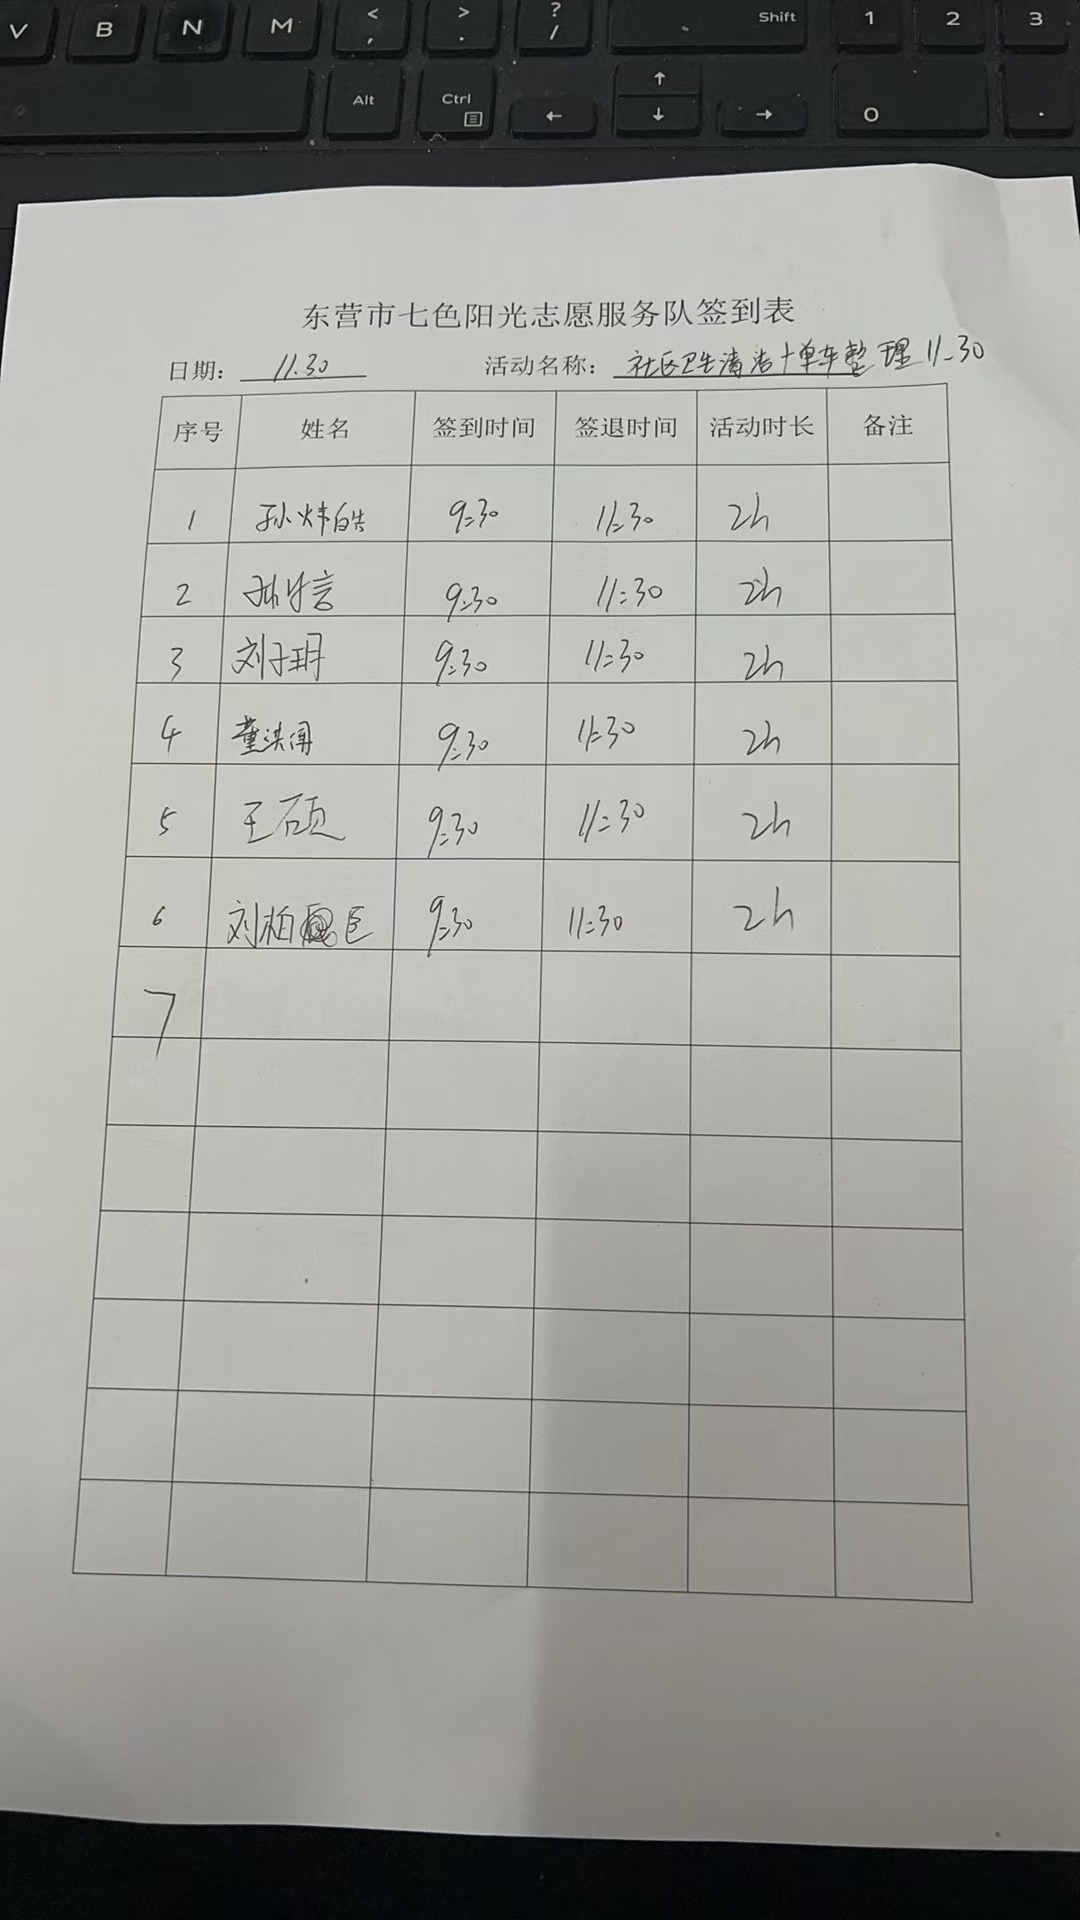 V B N M < , > . ? / Shift 1 2 3
Alt Ctrl ← ↑ ↓ → 0 .
东营市七色阳光志愿服务队签到表
日期: 11.30 活动名称: 社区卫生清洁+单车整理 11-30
序号 姓名 签到时间 签退时间 活动时长 备注
1 孙炜皓 9:30 11:30 2h
2 9:30 11:30 2h
3 刘子玥 9:30 11:30 2h
4 董洪闻 9:30 11:30 2h
5 王硕 9:30 11:30 2h
6 刘柏臣 9:30 11:30 2h
7